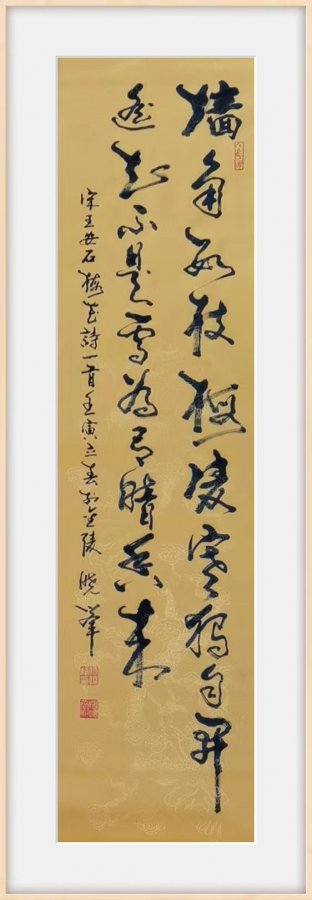 墙角数枝梅凌寒独自开
遥知不是雪为有暗香来
宋王安石梅花詩一首壬寅立春於金陵 晓峯